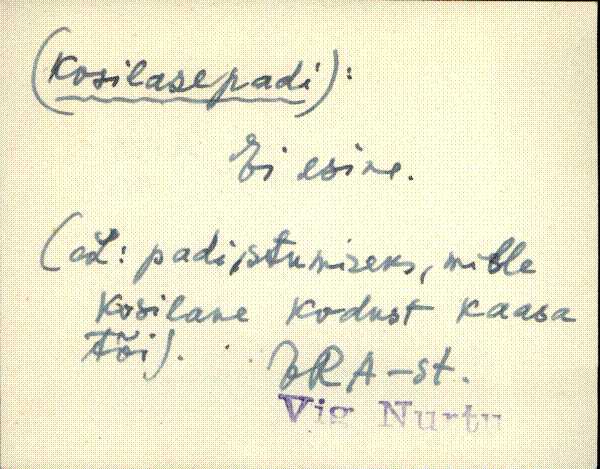 (Kosilasepadi):
Ei esine.
(padi istumiseks, mille
kosilane kodust kaasa
tõi).
ERA-st.
Vig Nurtu